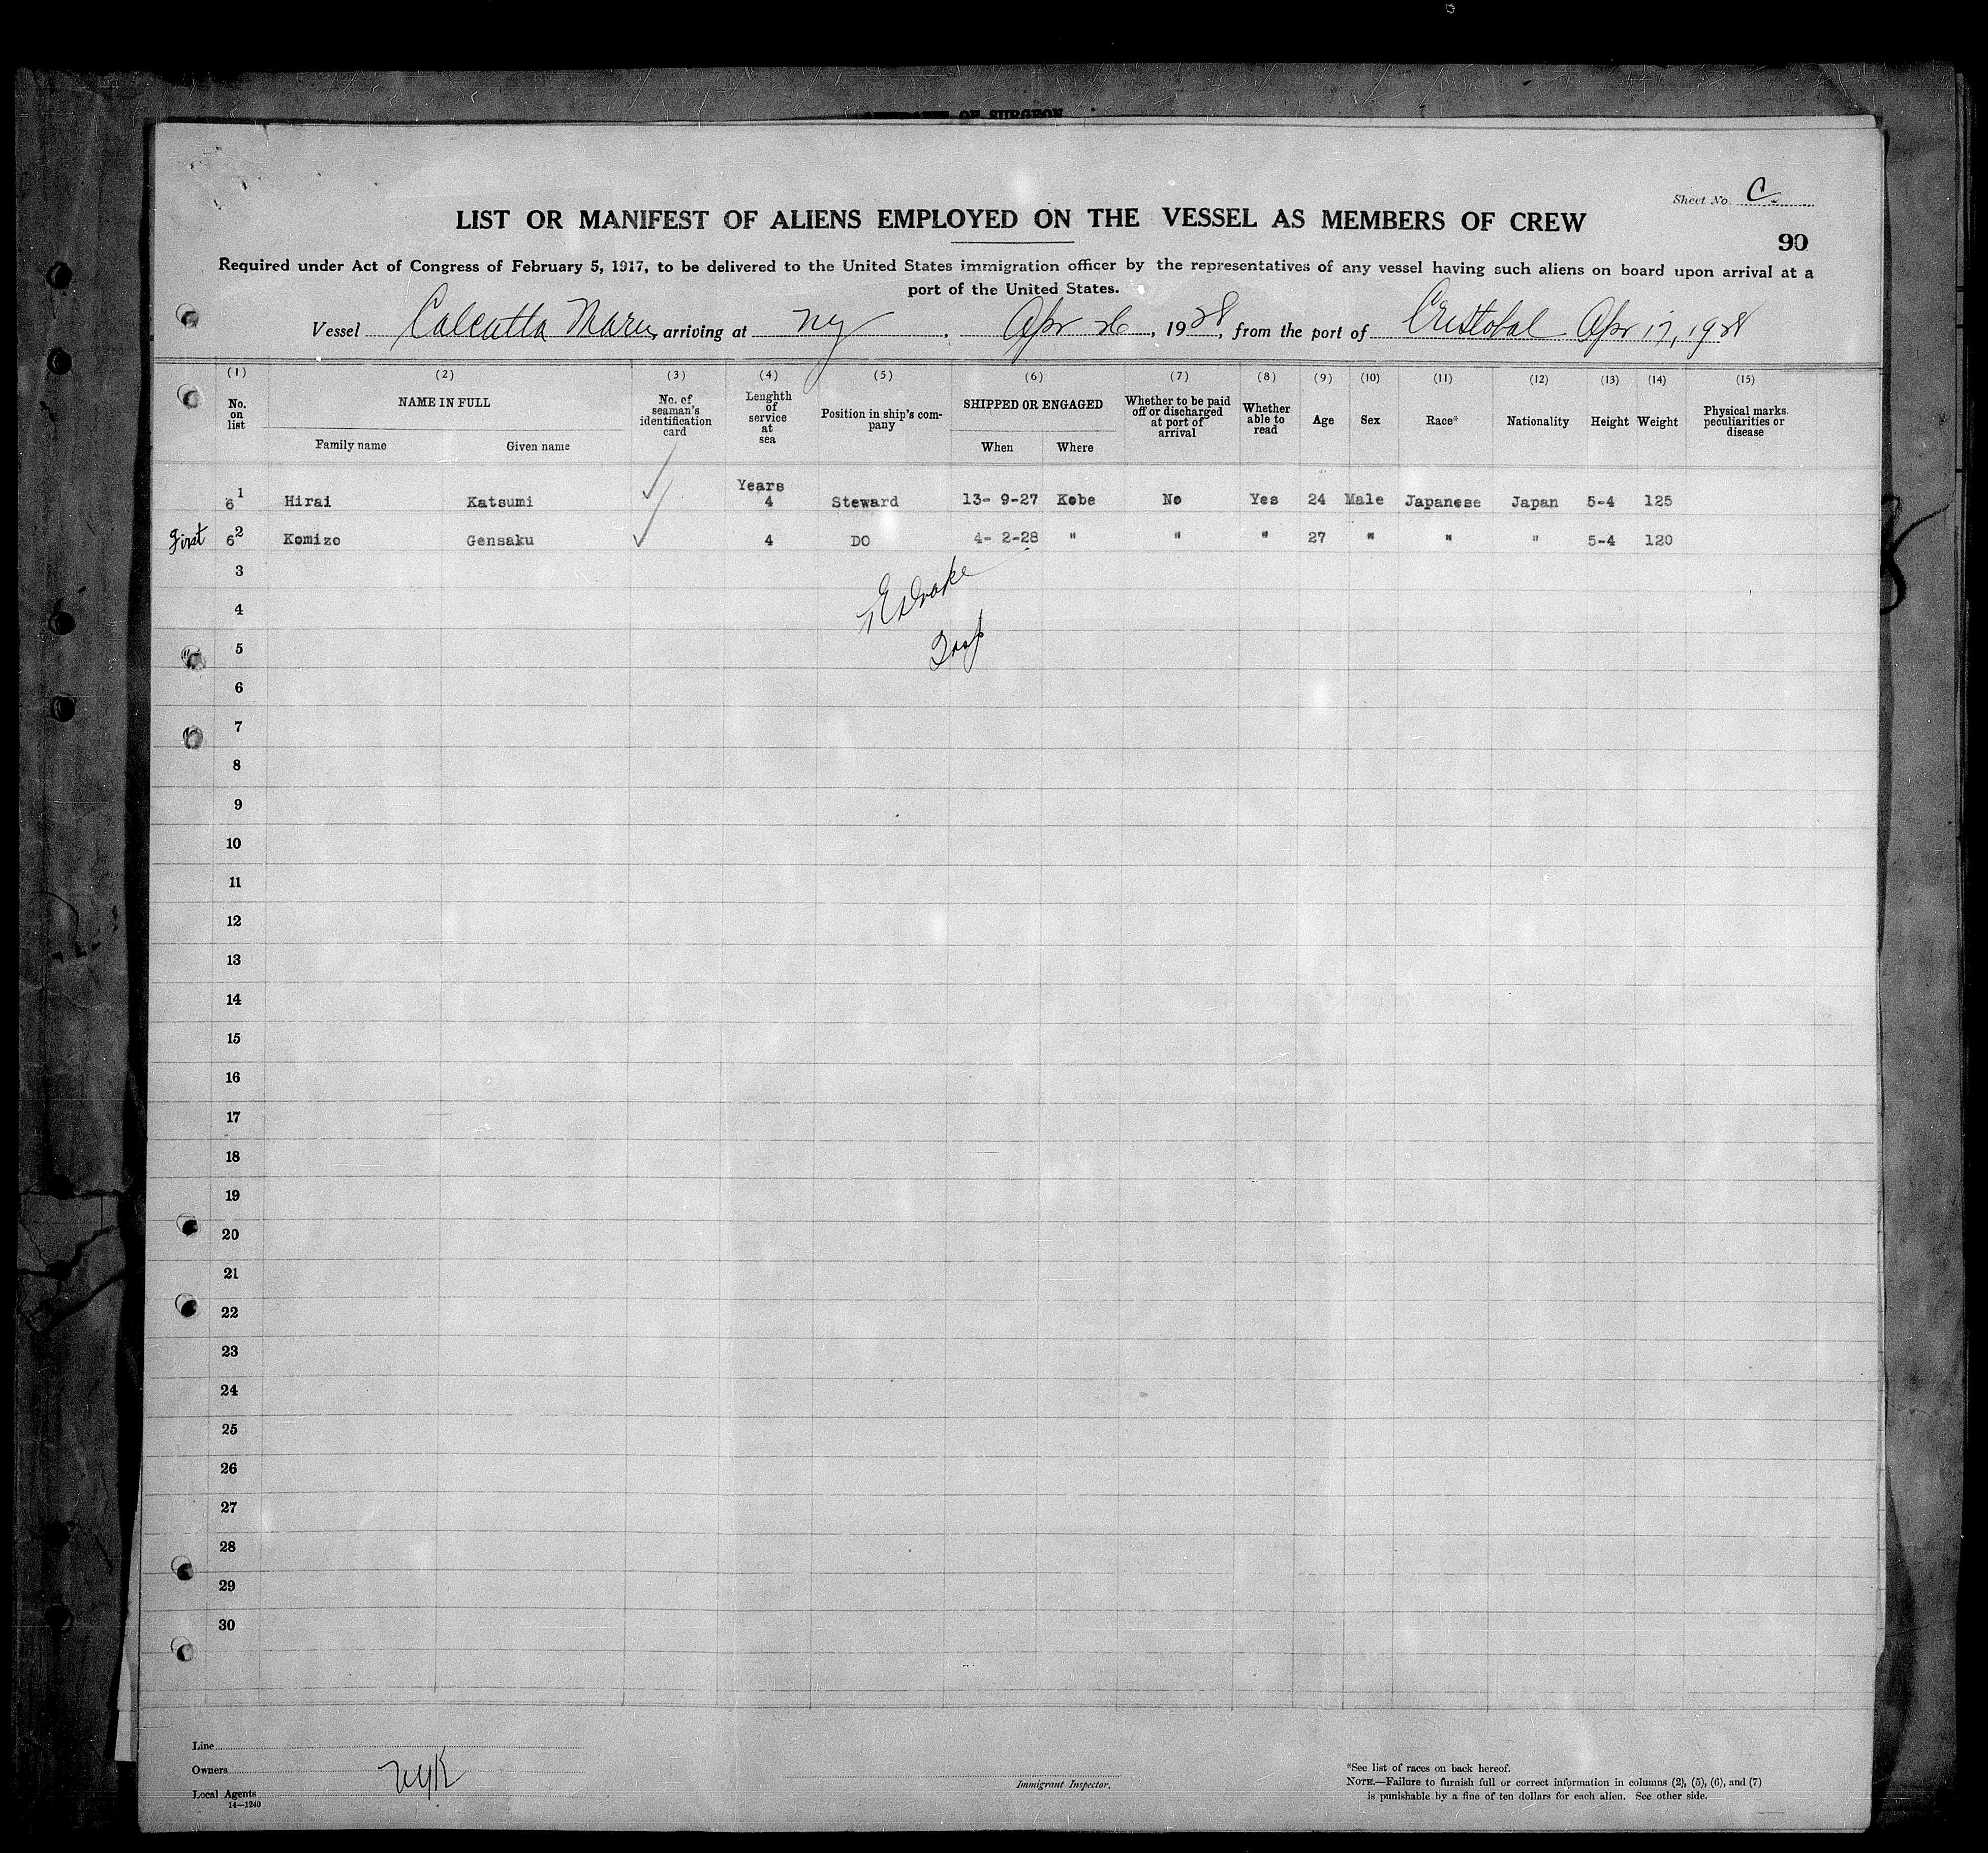 OF SURGEON
Sheet No. C
LIST OR MANIFEST OF ALIENS EMPLOYED ON THE VESSEL AS MEMBERS OF CREW
90
Required under Act of Congress of February 5, 1917, to be delivered to the United States immigration officer by the representatives of any vessel having such aliens on board upon arrival at a
port of the United States.
Vessel Calcutta Maru, arriving at NY, Apr 26, 1928, from the port of Cristobal Apr 17, 1928
(1) (2) (3) (4) (5) (6) (7) (8) (9) (10) (11) (12) (13) (14) (15)
No. on list
NAME IN FULL
Family name Given name
No. of seaman's identification card
Lenghth of service at sea
Position in ship's company
SHIPPED OR ENGAGED
When Where
Whether to be paid off or discharged at port of arrival
Whether able to read
Age Sex Race* Nationality Height Weight
Physical marks, peculiarities or disease
Years
6 1 Hirai Katsumi 4 Steward 13- 9-27 Kobe No Yes 24 Male Japanese Japan 5-4 125
First 6 2 Komizo Gensaku 4 DO 4- 2-28 " " " 27 " " " 5-4 120
3
4
5
6
7
8
9
10
11
12
13
14
15
16
17
18
19
20
21
22
23
24
25
26
27
28
29
30
Line
Owners NYK
Local Agents
14—1240
Immigrant Inspector.
*See list of races on back hereof.
NOTE.—Failure to furnish full or correct information in columns (2), (5), (6), and (7)
is punishable by a fine of ten dollars for each alien. See other side.